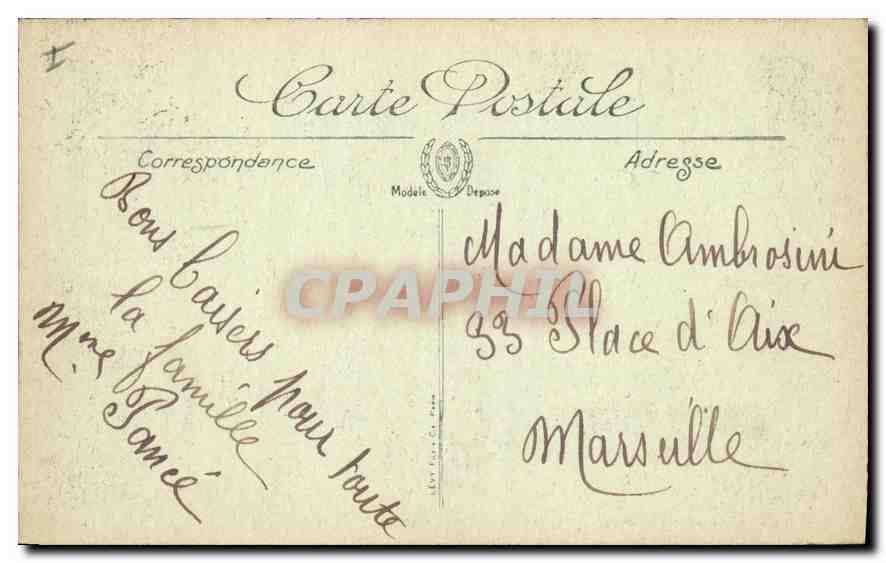 Carte Postale
Correspondance
Adresse
Modèle Déposé
Bons baisers pour toute
la famille
Mme Pancé
Madame Ambrosini
33 Place d'Aix
Marseille
CPAPHIL
LÉVY Fils & Cie Paris